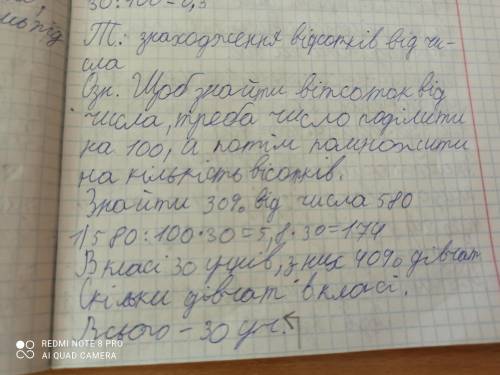 30:100=0,3
Т: знаходження відсотків від чи-
сла
Озн. Щоб знайти вітсоток від
числа, треба число поділити
на 100, а потім помножити
на кількість вісотків.
Знайти 30% від числа 580
1) 580:100·30=5,8·30=174
В класі 30 учнів, з них 40% дівчат
Скільки дівчат в класі.
Всього - 30 уч.
REDMI NOTE 8 PRO
AI QUAD CAMERA